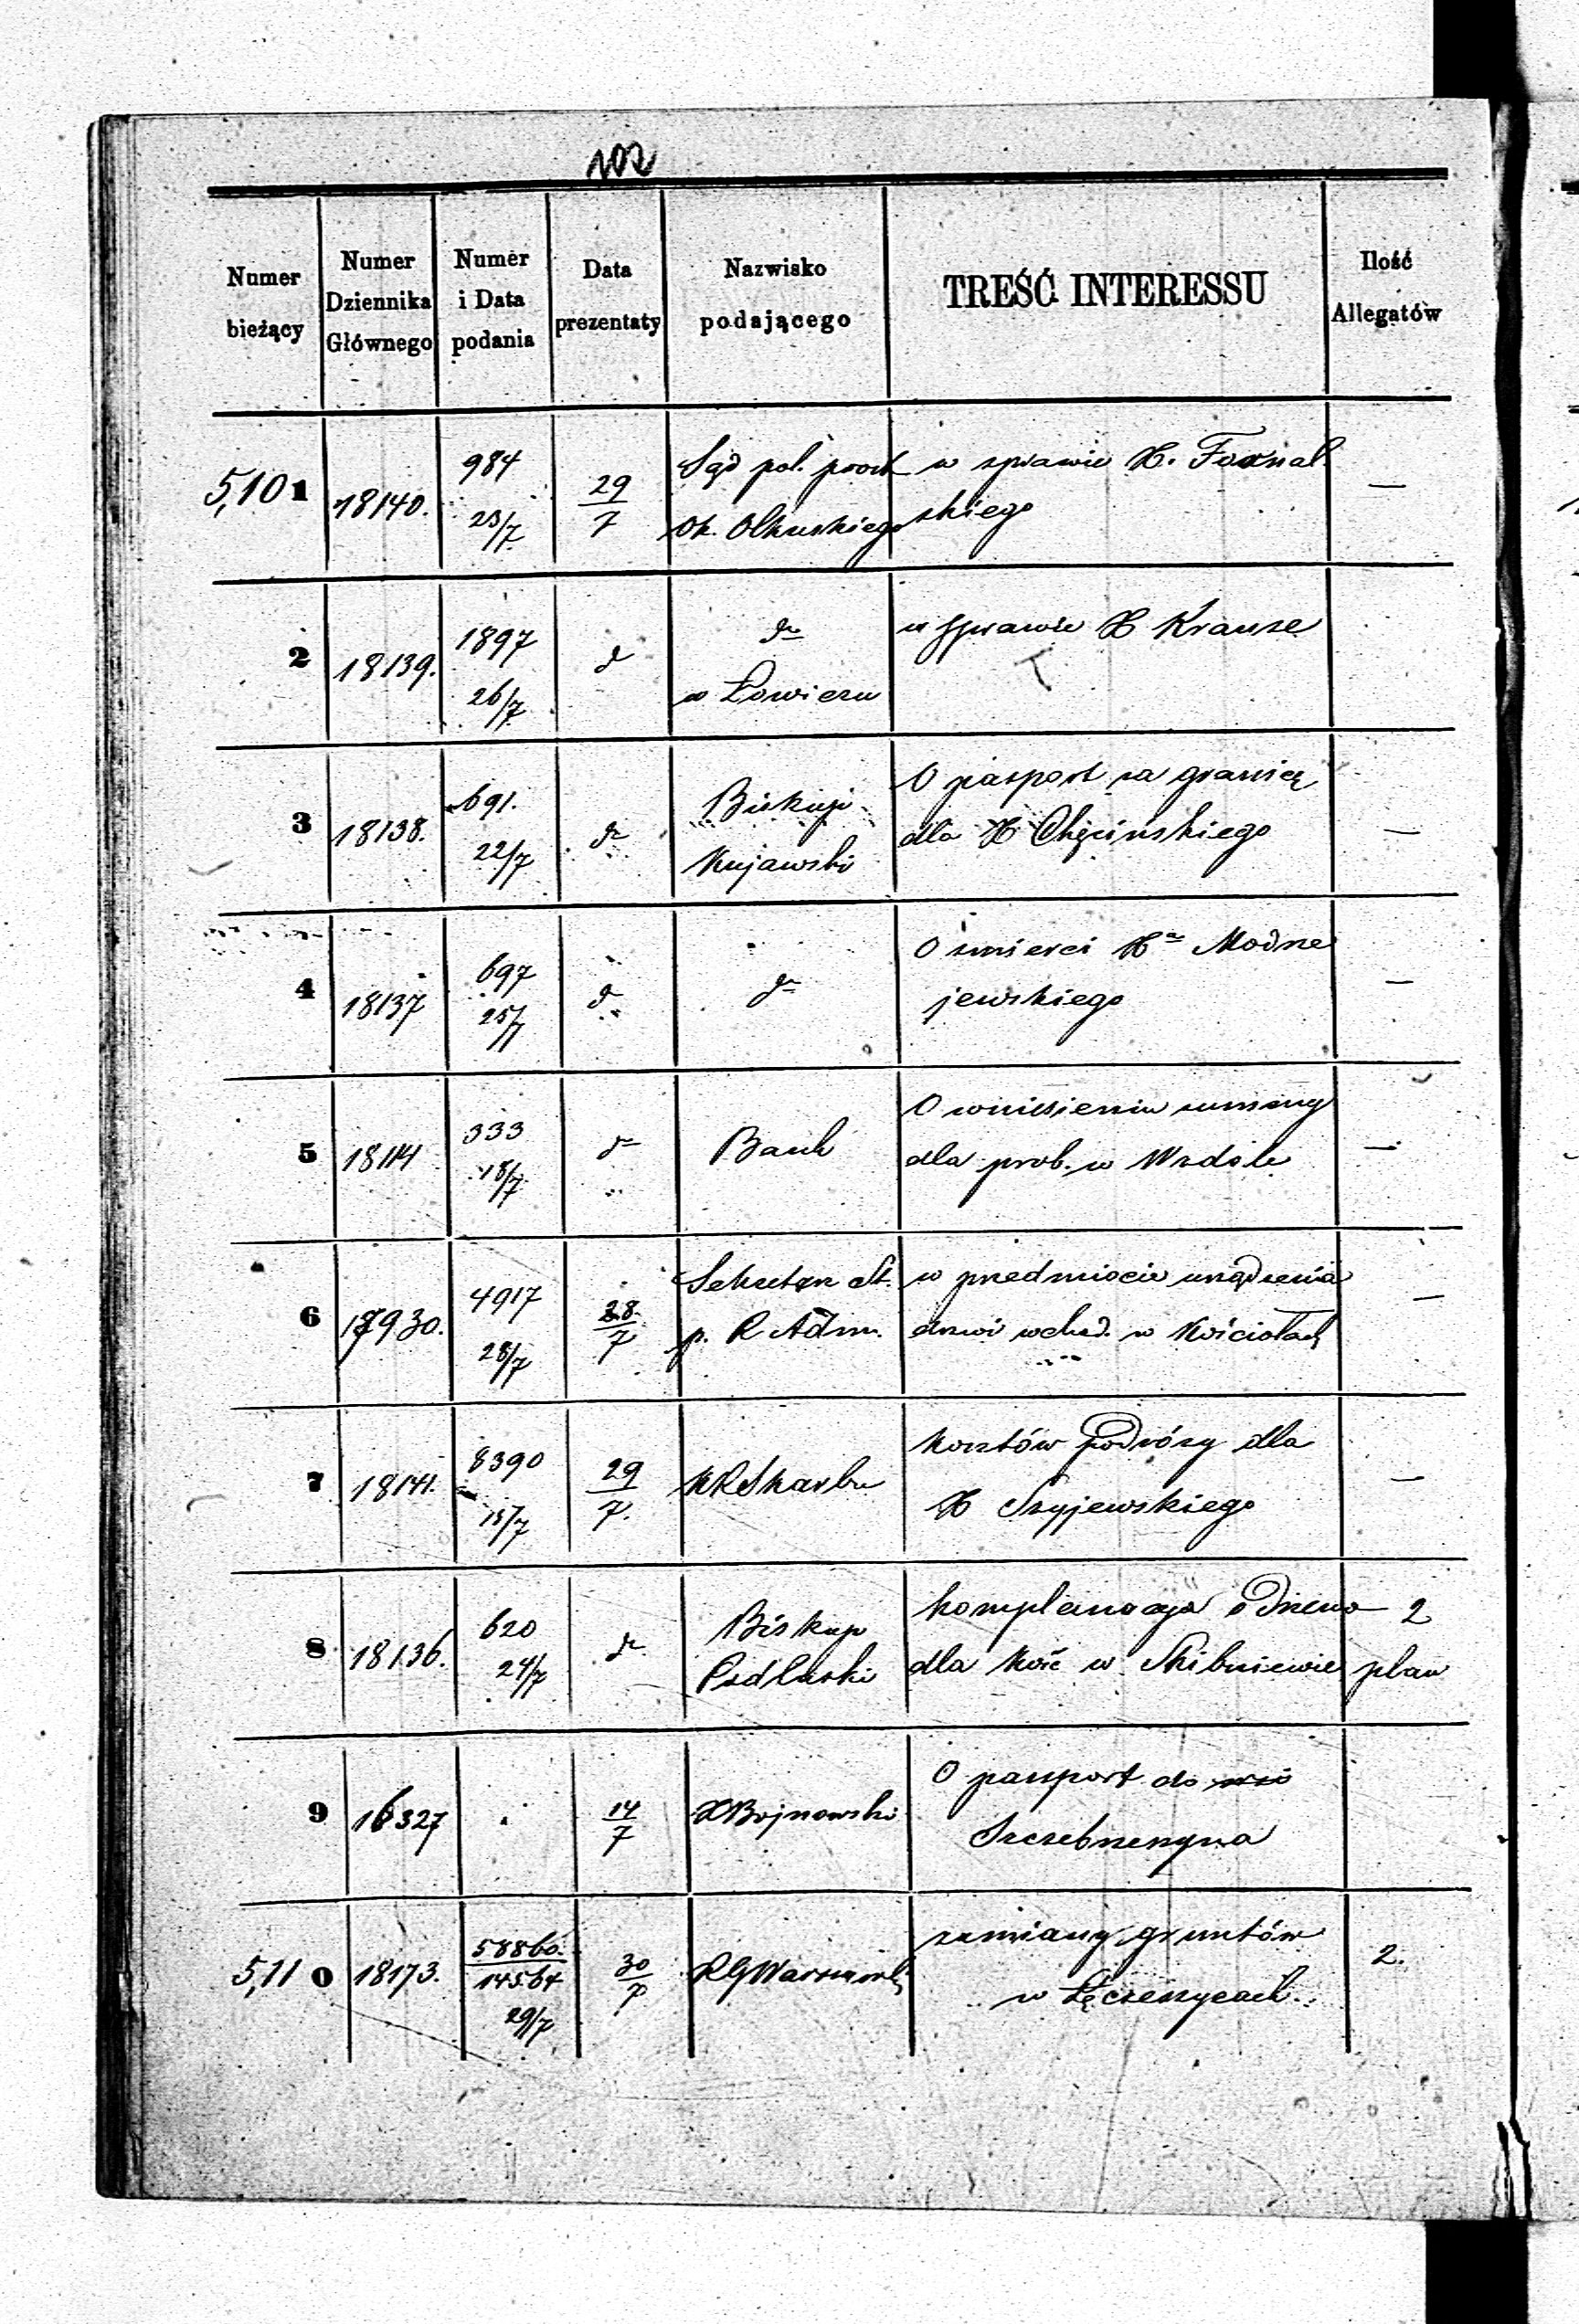 102
Numer bieżący | Numer Dziennika Głównego | Numer i Data podania | Data prezentaty | Nazwisko podającego | TREŚĆ INTERESSU | Ilość Allegatów
5,101 | 18140. | 984 23/7 | 29/7 | Sąd pol. prost Ok. Olkuskiego | w sprawie X. Foxnalskiego | —
2 | 18139. | 1897 26/7 | do | do w Łowiczu | w sprawie X Krause
3 | 18138. | 691. 22/7 | do | Biskup Kujawski | O pasport za granicę dla X Chęcińskiego | —
4 | 18137 | 697 25/7 | do | do | O śmierci Xa Modzejewskiego | —
5 | 18114 | 333 18/7 | do | Bank | O wniesieniu summy dla prob. w Wzdole | —
6 | 17930. | 4917 28/7 | 28/7 | Sekretarz St. p. R Adm. | w przedmiocie urządzenia drzwi wchod. w Kościołach | —
7 | 18141. | 8390 15/7 | 29/7. | KRSkarbu | Kosztów podróży dla X Szyjewskiego | —
8 | 18136. | 620 24/7 | do | Biskup Podlaski | Komplanacya o drzewo dla Kość w Skibniewie | 2 plan
9 | 16327 | 14/7 | XBojnowski | O passport do Szczebrzeszyna
5,110 | 18173. | 58860. 14564 29/7 | 30/7 | RGWarszawski | zamiany gruntów w Łęczeszycach. | 2.